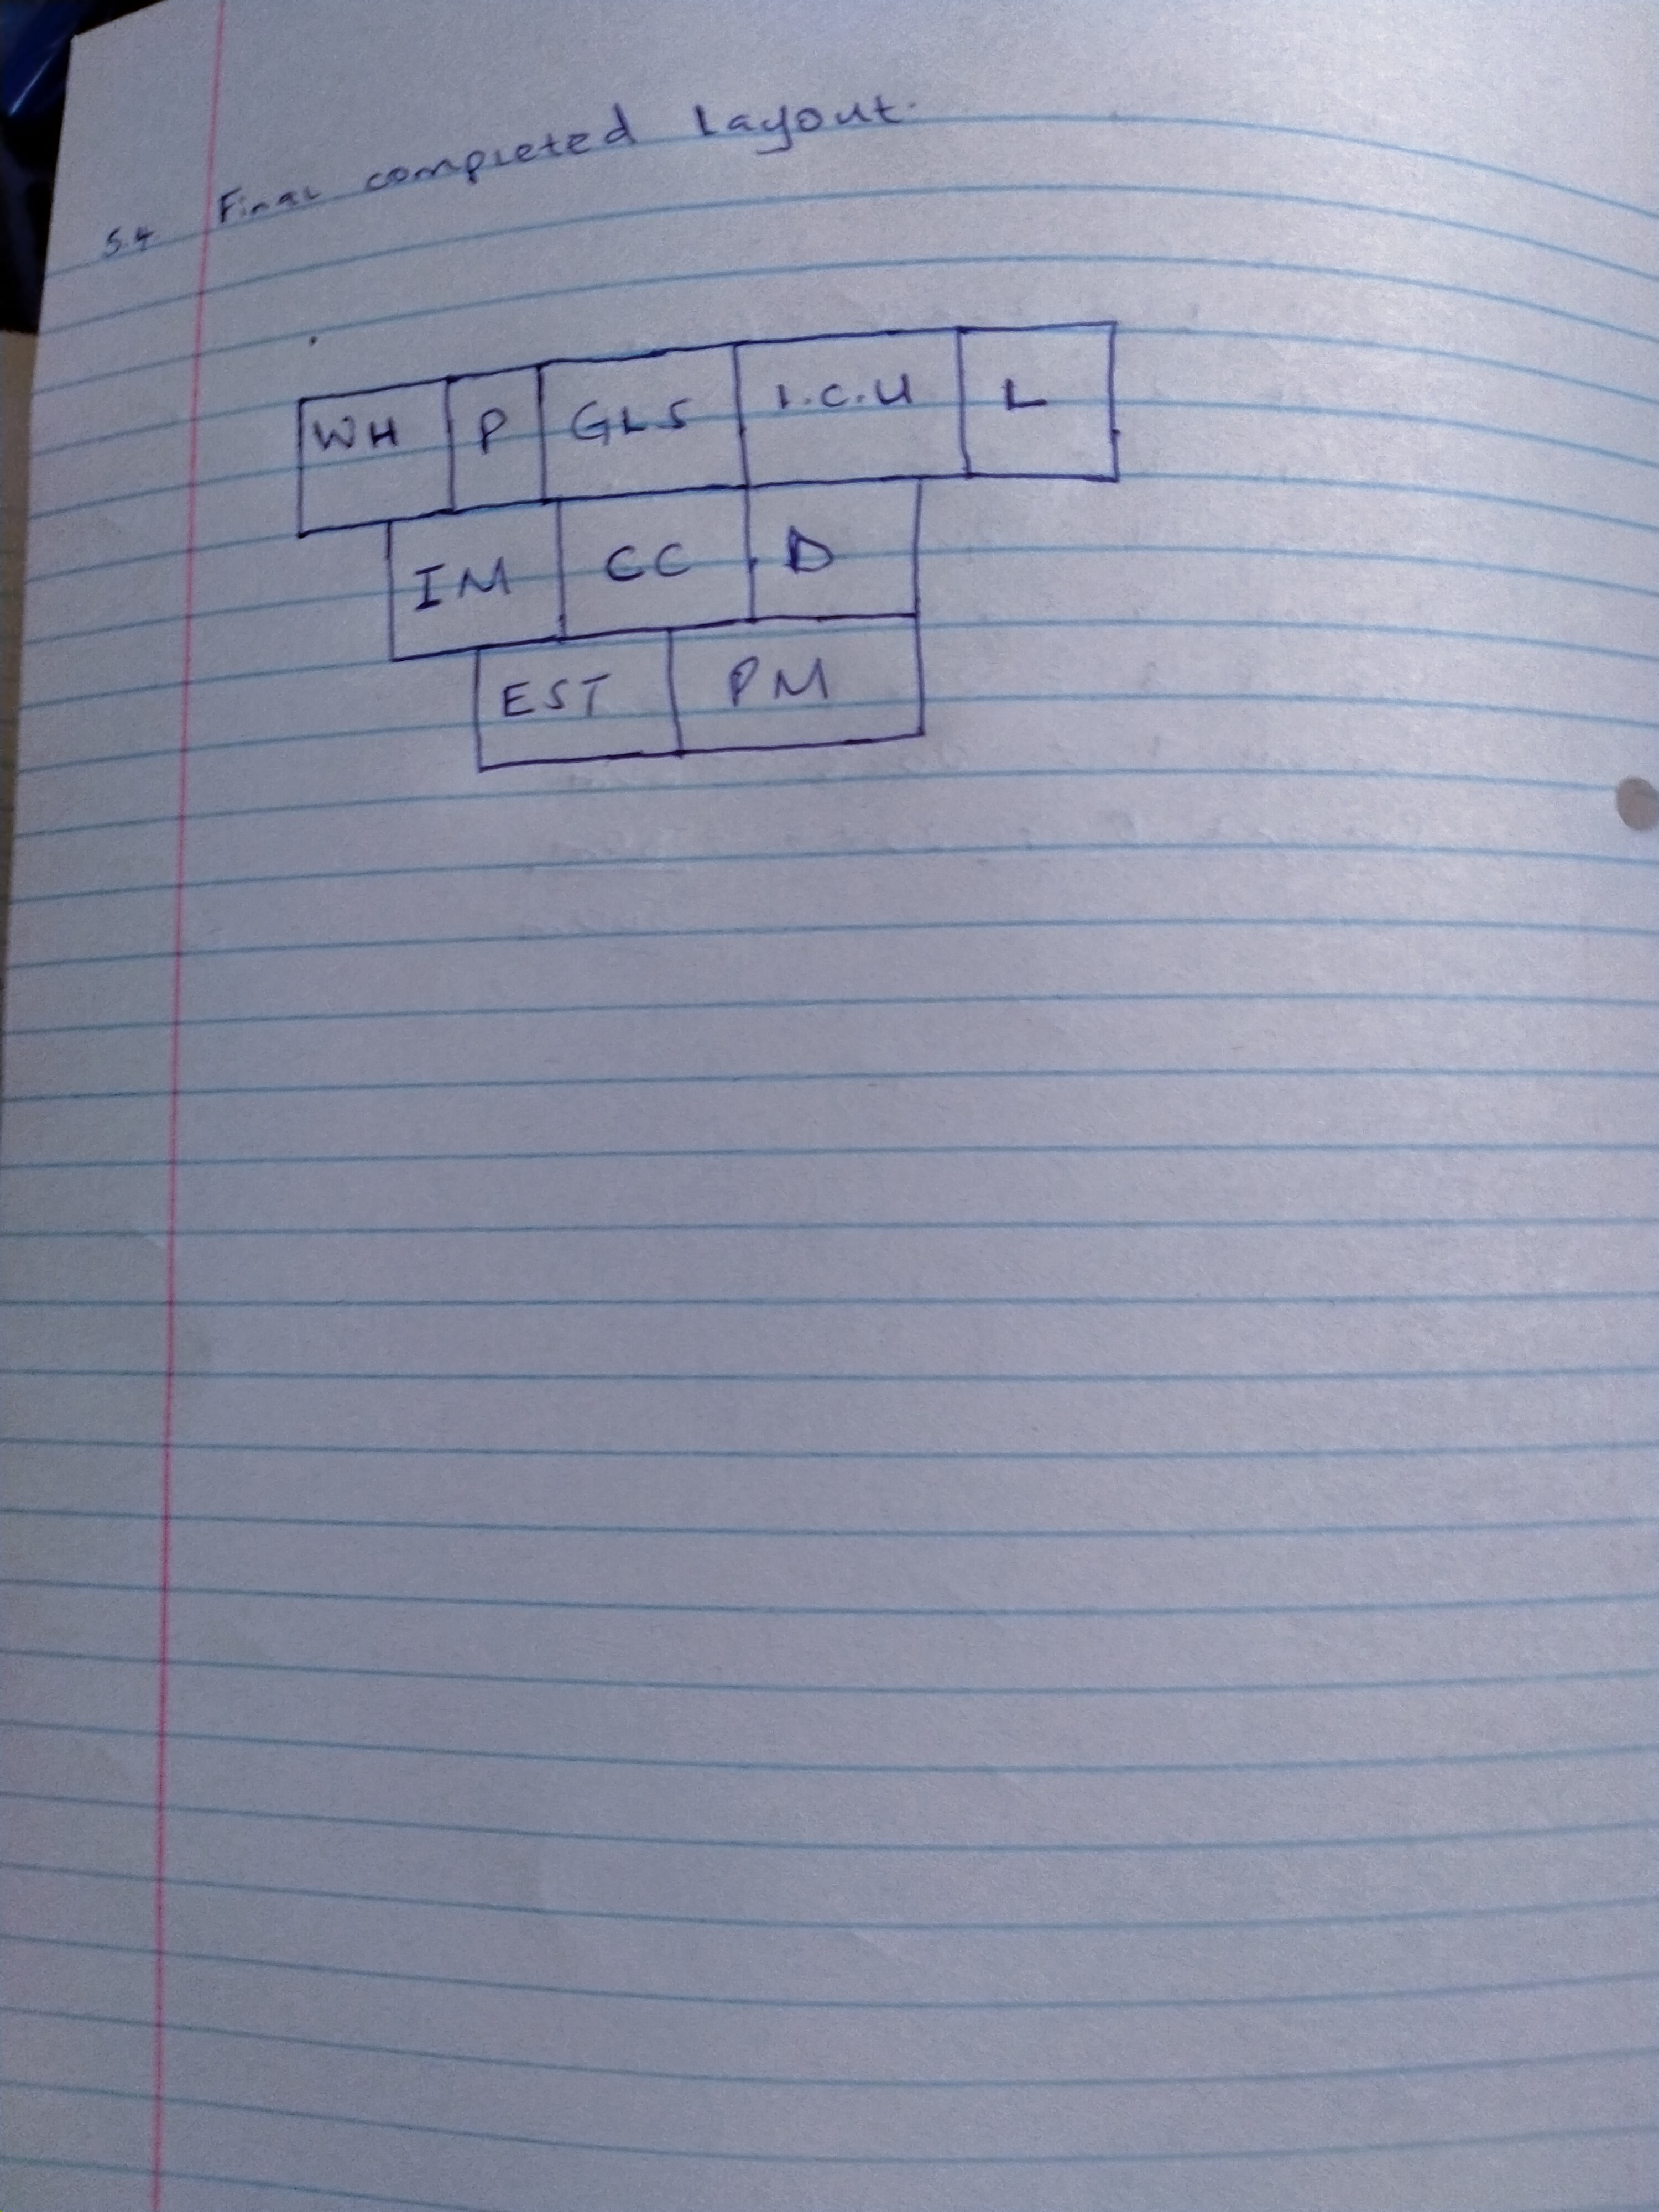 5.4 Final completed layout.
WH P GLS I.C.U L
IM CC D
EST PM